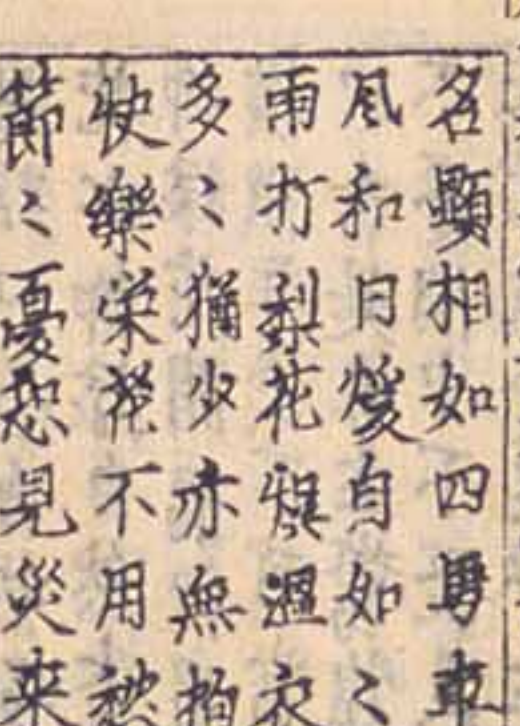 名顕相如四馬車
風和日煖自如〻
雨打梨花湿衣
多〻猶少亦無拍
快樂栄花不用愁
節〻憂恐見災来